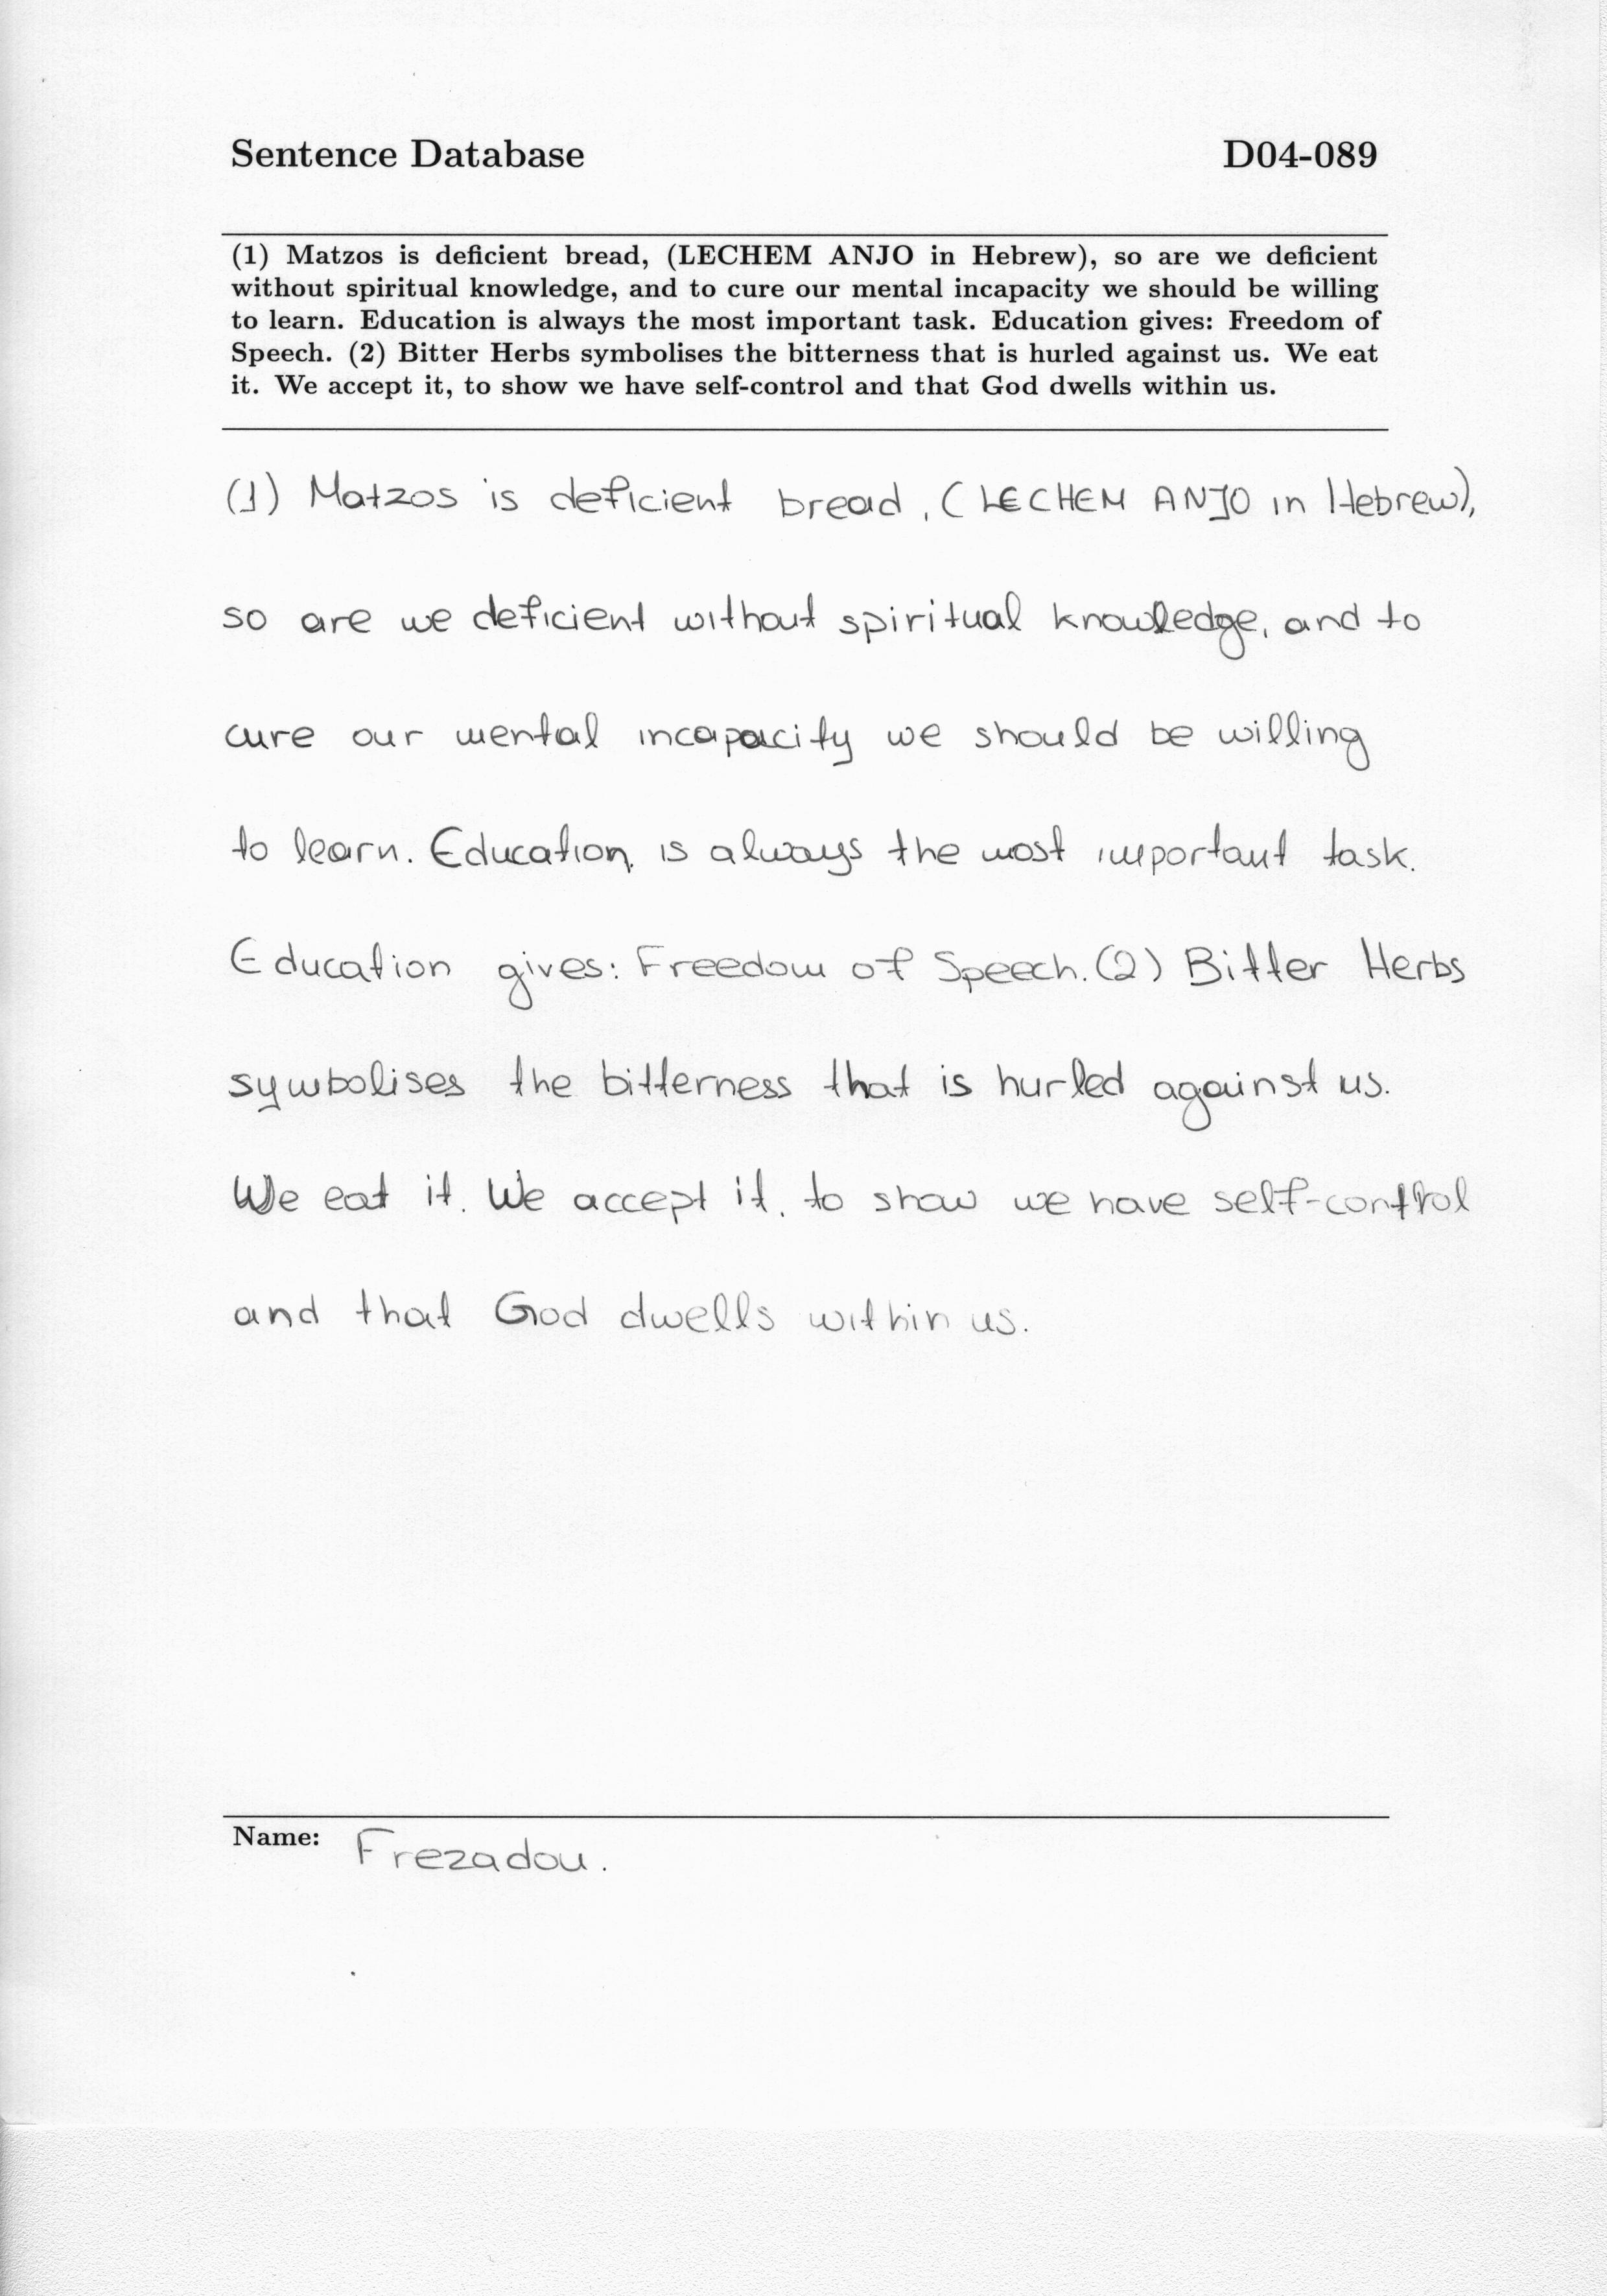 Sentence Database D04-089
(1) Matzos is deficient bread, (LECHEM ANJO in Hebrew), so are we deficient
without spiritual knowledge, and to cure our mental incapacity we should be willing
to learn. Education is always the most important task. Education gives: Freedom of
Speech. (2) Bitter Herbs symbolises the bitterness that is hurled against us. We eat
it. We accept it, to show we have self-control and that God dwells within us.
(1) Matzos is deficient bread, (LECHEM ANJO in Hebrew),
so are we deficient without spiritual knowledge, and to
cure our mental incapacity we should be willing
to learn. Education is always the most important task.
Education gives: Freedom of Speech. (2) Bitter Herbs
symbolises the bitterness that is hurled against us.
We eat it. We accept it, to show we have self-control
and that God dwells within us.
Name: Frezadou.